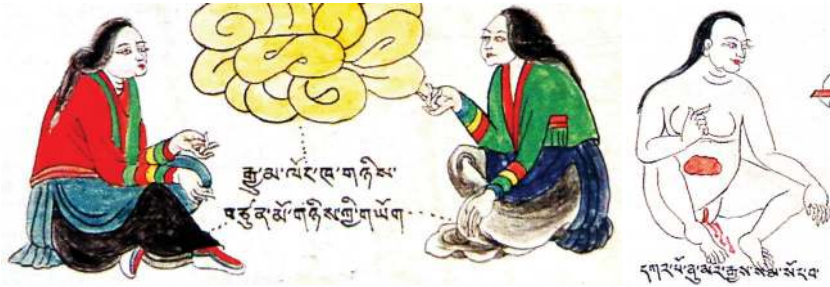 རྒྱུ་མ་ལོང་ཁ་གཉིས་
བཙུན་མོ་གཉིས་ཀྱི་གཡོག
དཀར་པོ་ནུ་མར་རྒྱས་སམ་སོང་བ